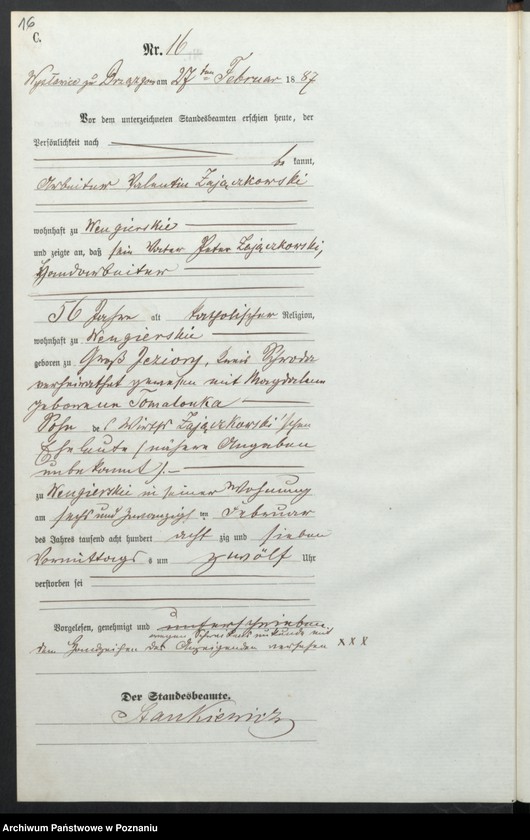 16
C.
Nr. 16
am 27ten Februar 1887
Vor dem unterzeichneten Standesbeamten erschien heute, der
Persönlichkeit nach
be kannt,
Arbeiter Valentin Zajączkowski
wohnhaft zu Wengierskie
und zeigte an, daß sein Vater Peter Zajączkowski,
Handarbeiter
56 Jahre alt katholischer Religion,
wohnhaft zu Wengierskie
geboren zu Groß Jeziory, Kreis Schroda
verheirathet gewesen mit Magdalena
geborene
Sohn des Wirths Zajączkowski'schen
Eheleute (nähere Angaben
unbekannt).
zu Wengierskie in seiner Wohnung
am sechs und zwanzigsten Februar
des Jahres tausend acht hundert acht zig und sieben
Vormittags um zwölf Uhr
verstorben sei
Vorgelesen, genehmigt und unterschrieben
wegen Schreibensunkunde mit
dem Handzeichen des Anzeigenden versehen xxx
Der Standesbeamte.
Stankiewicz
Archiwum Państwowe w Poznaniu